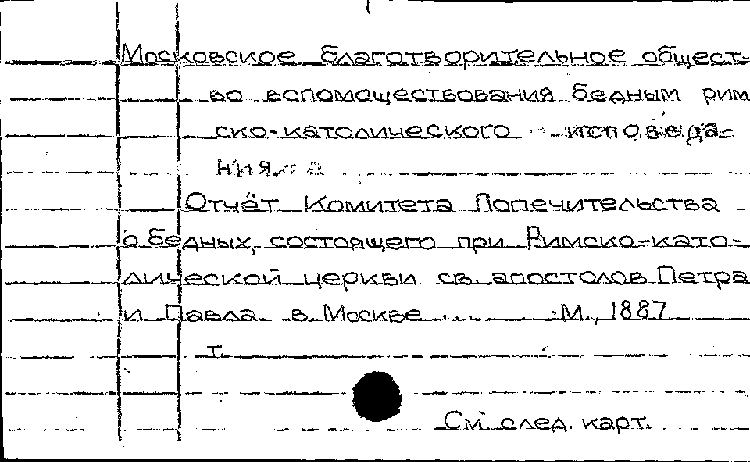 Московское благотворительное общест-
во вспомоществования бедным рим
ско-католического исповеда-
ния
Отчёт Комитета Попечительства
о бедных, состоящего при Римско-като-
лической церкви св. апостолов Петра
и Павла в Москве ... М., 1887
т.
См след. карт.